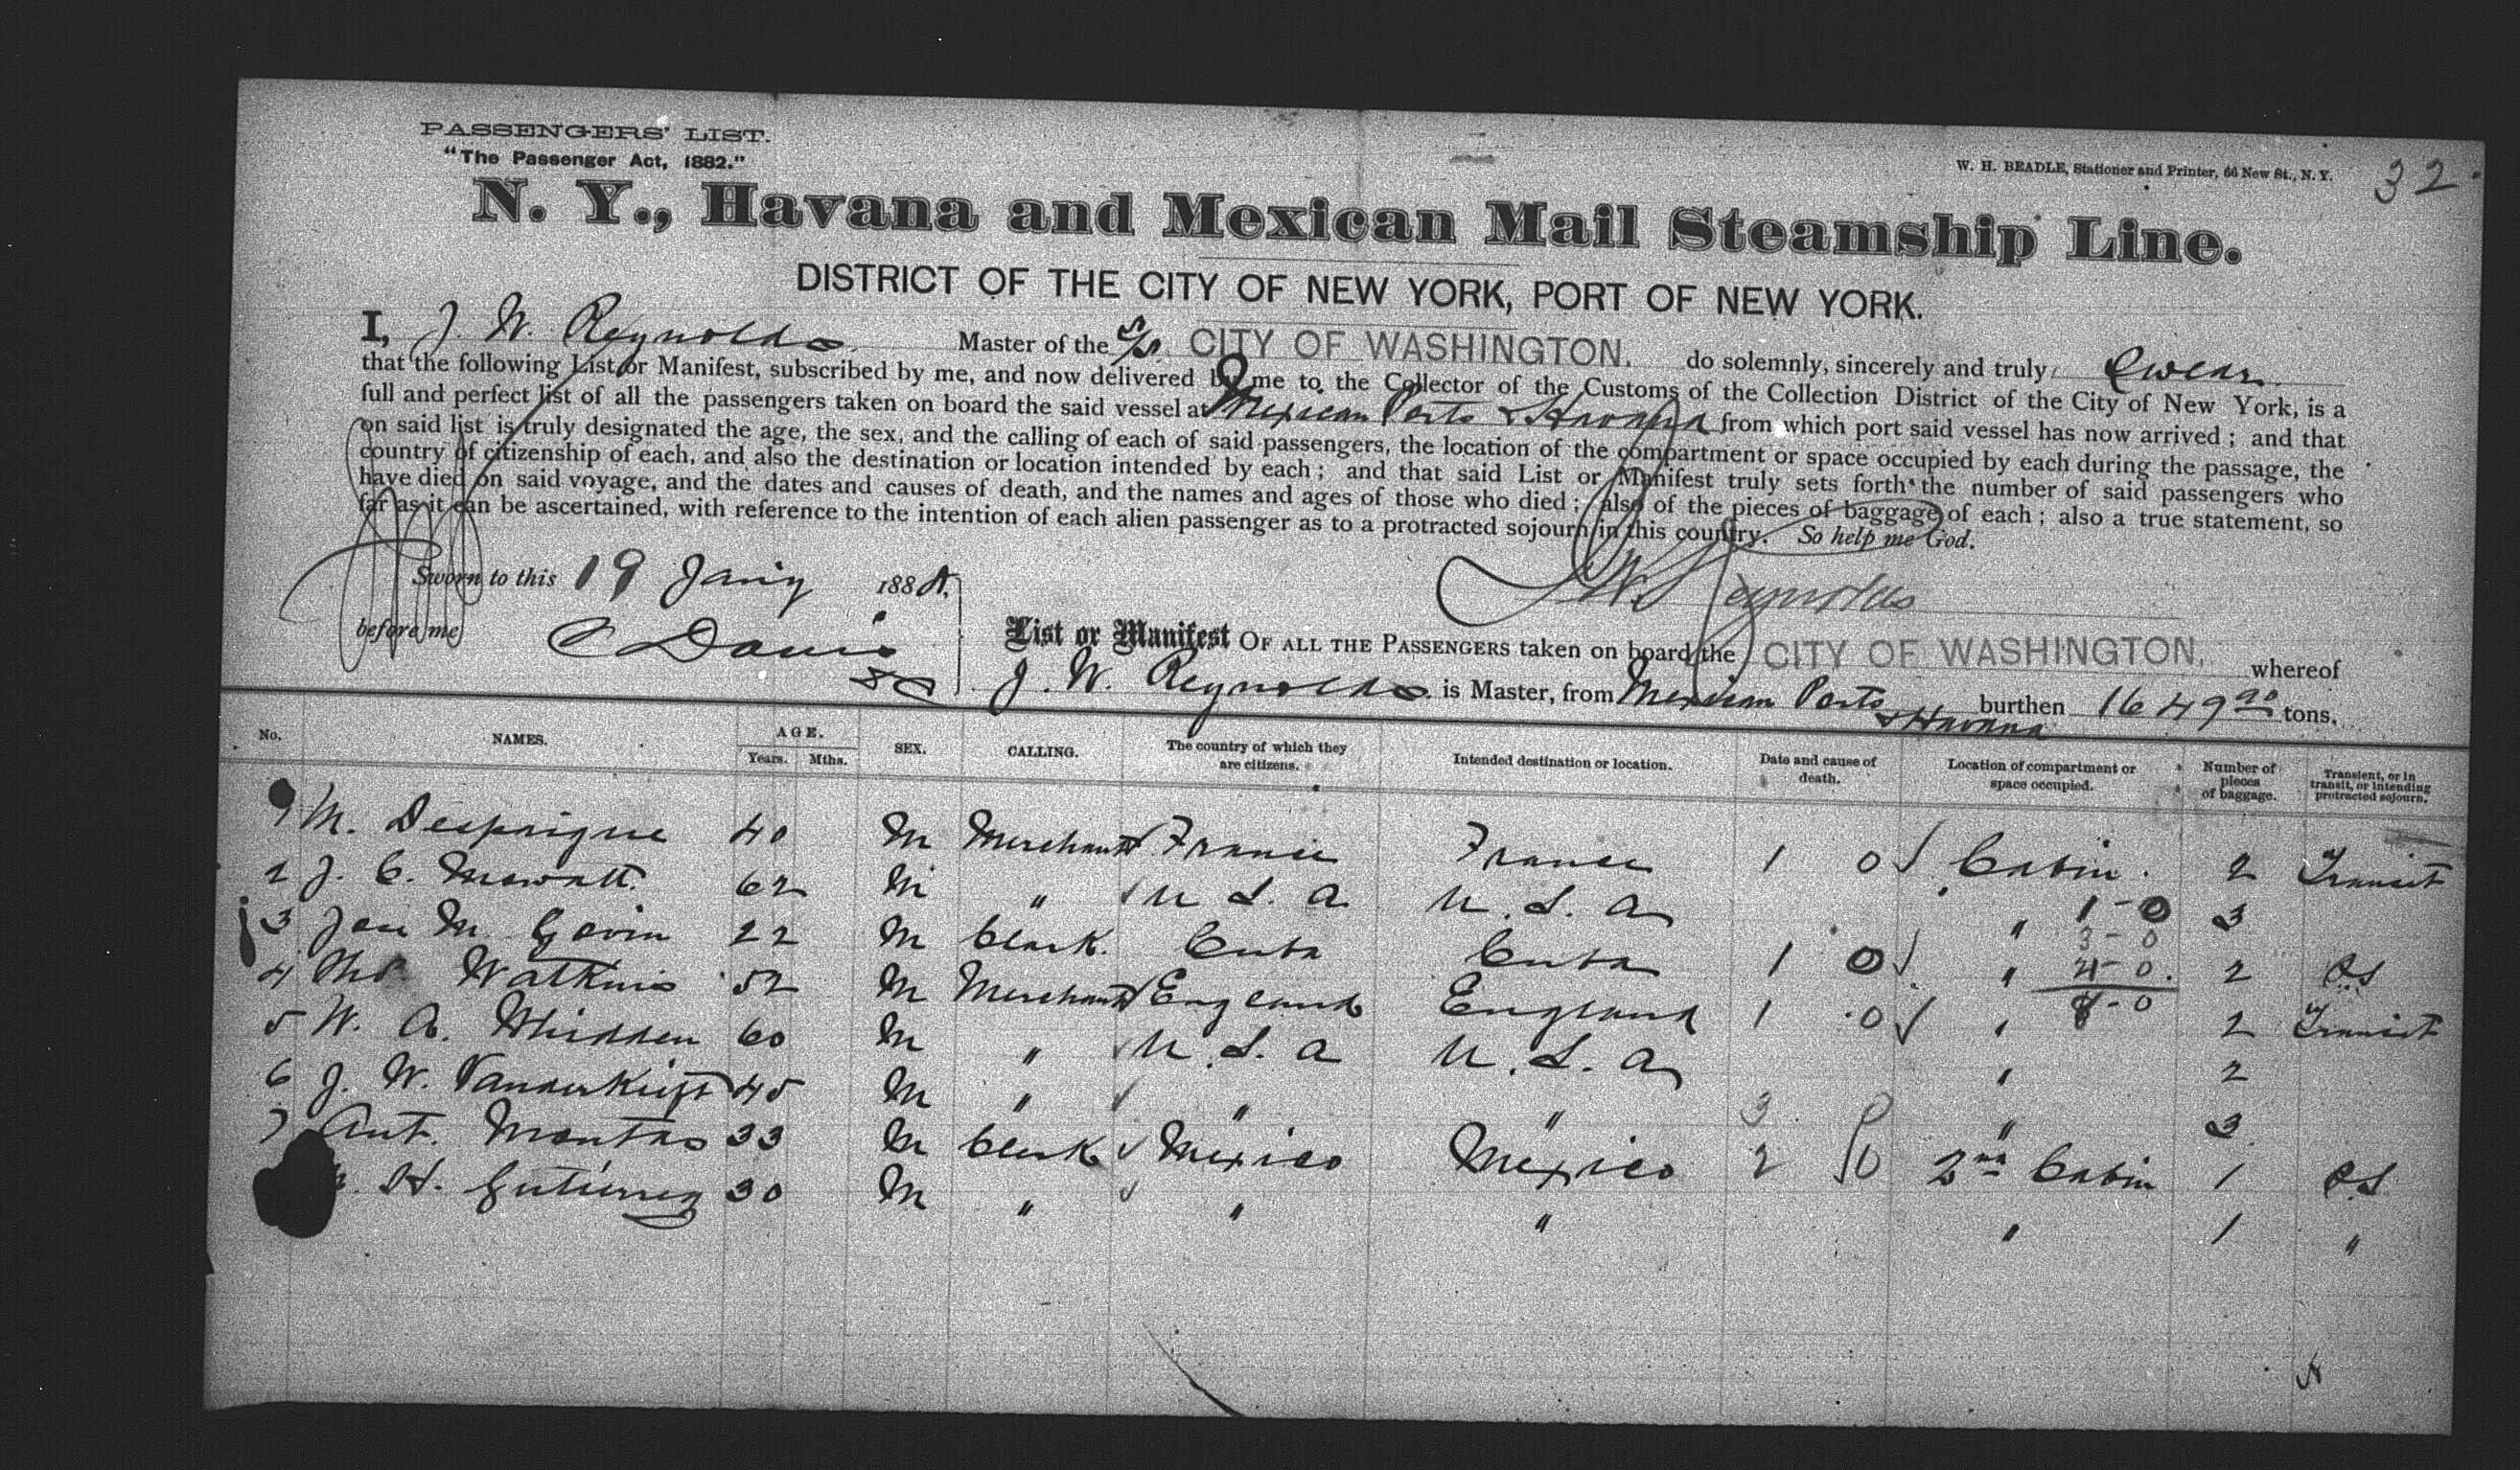 PASSENGERS' LIST.
"The Passenger Act, 1882."
W. H. BEADLE, Stationer and Printer, 66 New St., N. Y.
32
N. Y., Havana and Mexican Mail Steamship Line.
DISTRICT OF THE CITY OF NEW YORK, PORT OF NEW YORK.
I, J. W. Reynolds Master of the S/S CITY OF WASHINGTON. do solemnly, sincerely and truly Swear
that the following List or Manifest, subscribed by me, and now delivered by me to the Collector of the Customs of the Collection District of the City of New York, is a
full and perfect list of all the passengers taken on board the said vessel at Mexican Ports & Havana from which port said vessel has now arrived; and that
on said list is truly designated the age, the sex, and the calling of each of said passengers, the location of the compartment or space occupied by each during the passage, the
country of citizenship of each, and also the destination or location intended by each; and that said List or Manifest truly sets forth the number of said passengers who
have died on said voyage, and the dates and causes of death, and the names and ages of those who died; also of the pieces of baggage of each; also a true statement, so
far as it can be ascertained, with reference to the intention of each alien passenger as to a protracted sojourn in this country. So help me God.
Sworn to this 19 Jany 188
J W Reynolds
before me C Davis
List or Manifest OF ALL THE PASSENGERS taken on board the CITY OF WASHINGTON, whereof
J. W. Reynolds is Master, from Mexican Ports & Havana burthen 1649 90 tons.
No. NAMES. AGE. Years. Mths. SEX. CALLING. The country of which they are citizens. Intended destination or location. Date and cause of death. Location of compartment or space occupied. Number of pieces of baggage. Transient, or in transit, or intending protracted sojourn.
1 M. Despaigne 40 M Merchant France France 1 0 Cabin. 2 Transit
2 J. C. Mowatt 62 M " U S. A U. S. A " 1-0 3
3-0
3 Jou M Govin 22 M Clerk. Cuba Cuba 1 0 " 4-0. 2 P.S
8-0
4 Thos Watkins 52 M Merchant England England 1 0 " 2 Transit
5 W. A. Whidden 60 M " U. S. A U. S. A " 2
6 J. W. Vanderkieft 45 M " " " 3 0 " 3
7 Ant. Montas 33 M Clerk Mexico Mexico 2 0 2nd Cabin 1 P.S
H. Gutierrez 30 M " " " " 1 "